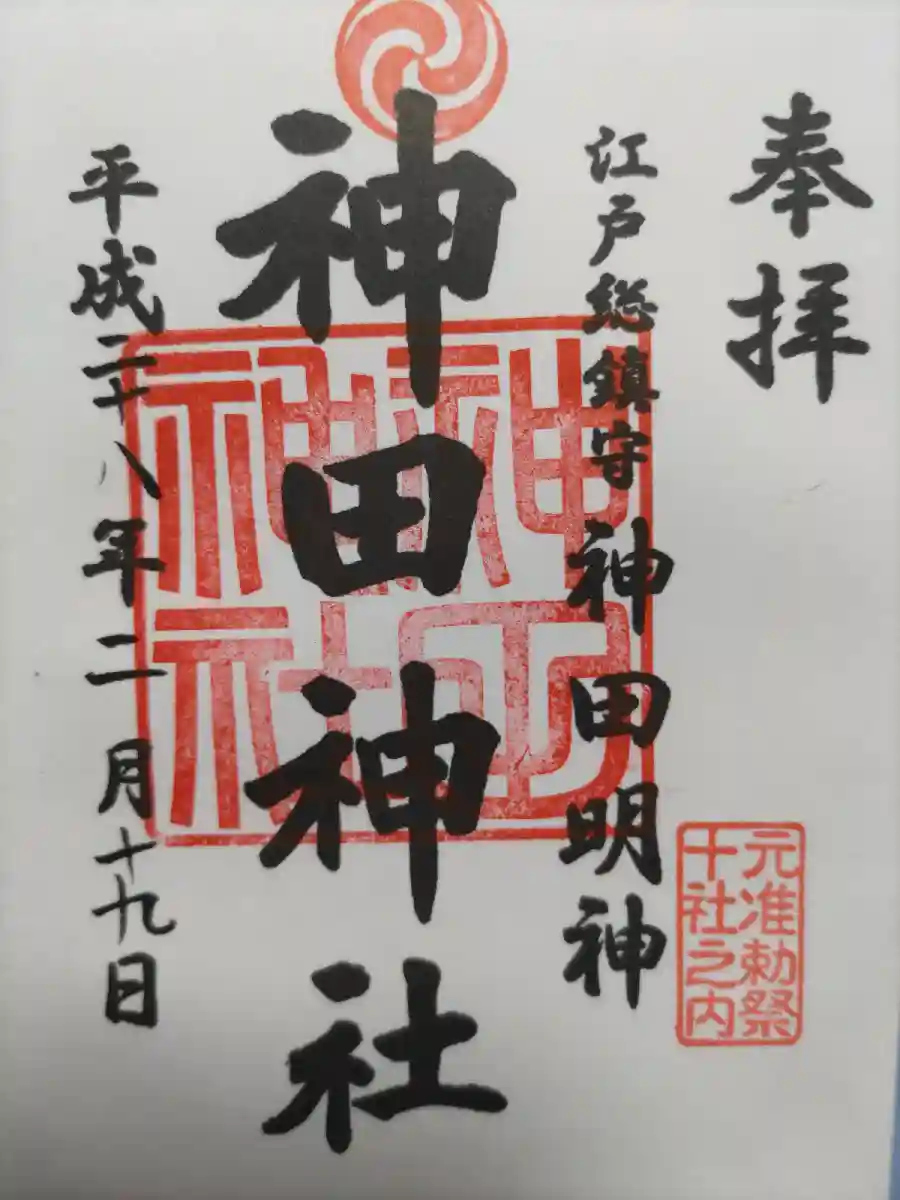 奉拝
元准勅祭
十社之内
江戸総鎮守 神田明神
神田神社
神田
神社
平成二十八年二月十九日